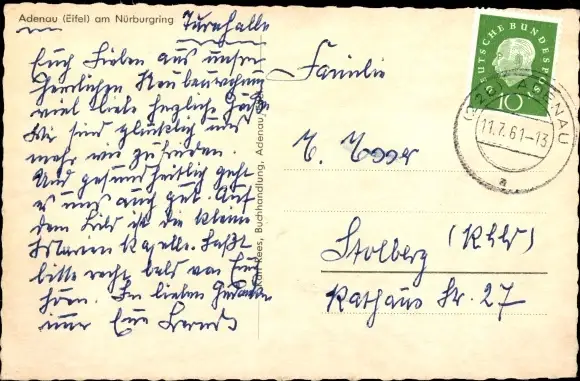 Adenau (Eifel) am Nürburgring
Turnhalle
Euch Lieben aus unserer
herrlichen
viel liebe herzliche Grüße
Wir sind glücklich und
mehr wie zufrieden.
Und gesundheitlich geht
es uns auch gut. Auf
dem Bild ist die kleine
Kapelle. Laßt
bitte recht bald von Euch
hören. In lieben Gedanken
immer Eure
Karl Rees, Buchhandlung, Adenau
Familie
Stolberg (Rhld)
Rathaus Str. 27
DEUTSCHE BUNDESPOST
10
ADENAU
11.7.61-13
a